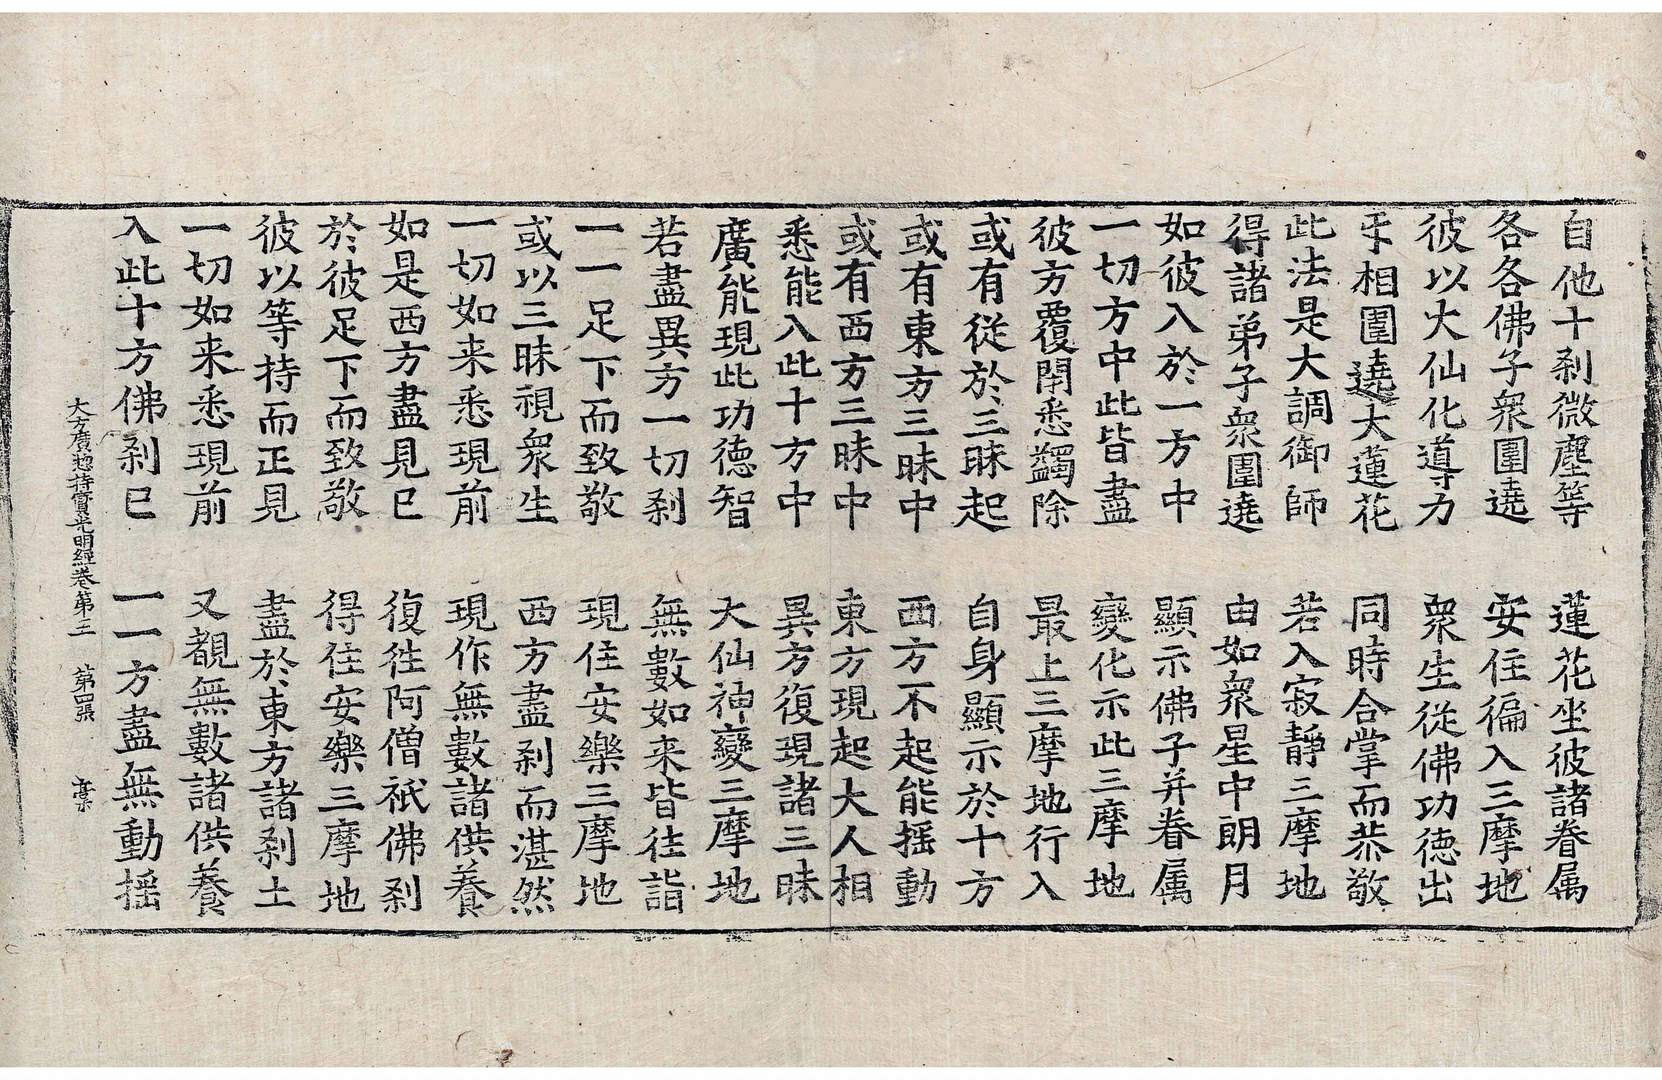 自他十刹微塵等　蓮花坐彼諸眷属
各各佛子衆圍遶　安住徧入三摩地
彼以大仙化導力　衆生從佛功德出
㸦相圍遶大蓮花　同時合掌而恭敬
此法是大調御師　若入寂靜三摩地
得諸弟子衆圍遶　由如衆星中朗月
如彼入於一方中　顯示佛子并眷属
一切方中此皆盡　變化示此三摩地
彼方覆閇悉蠲除　最上三摩地行入
或有從於三昧起　自身顯示於十方
或有東方三昧中　西方不起能揺動
或有西方三昧中　東方現起大人相
悉能入此十方中　異方復現諸三昧
廣能現此功德智　大仙神變三摩地
若盡異方一切刹　無數如来皆往詣
一一足下而致敬　現住安樂三摩地
或以三昧視衆生　西方盡刹而湛然
一切如来悉現前　現作無數諸供養
如是西方盡見巳　復徃阿僧祇佛刹
於彼足下而致敬　得住安樂三摩地
彼以等持而正見　盡於東方諸刹土
一切如来悉現前　又覩無數諸供養
入此十方佛刹巳　一一方盡無動揺
大方廣揔持寳光明經卷第三　第四張　槀